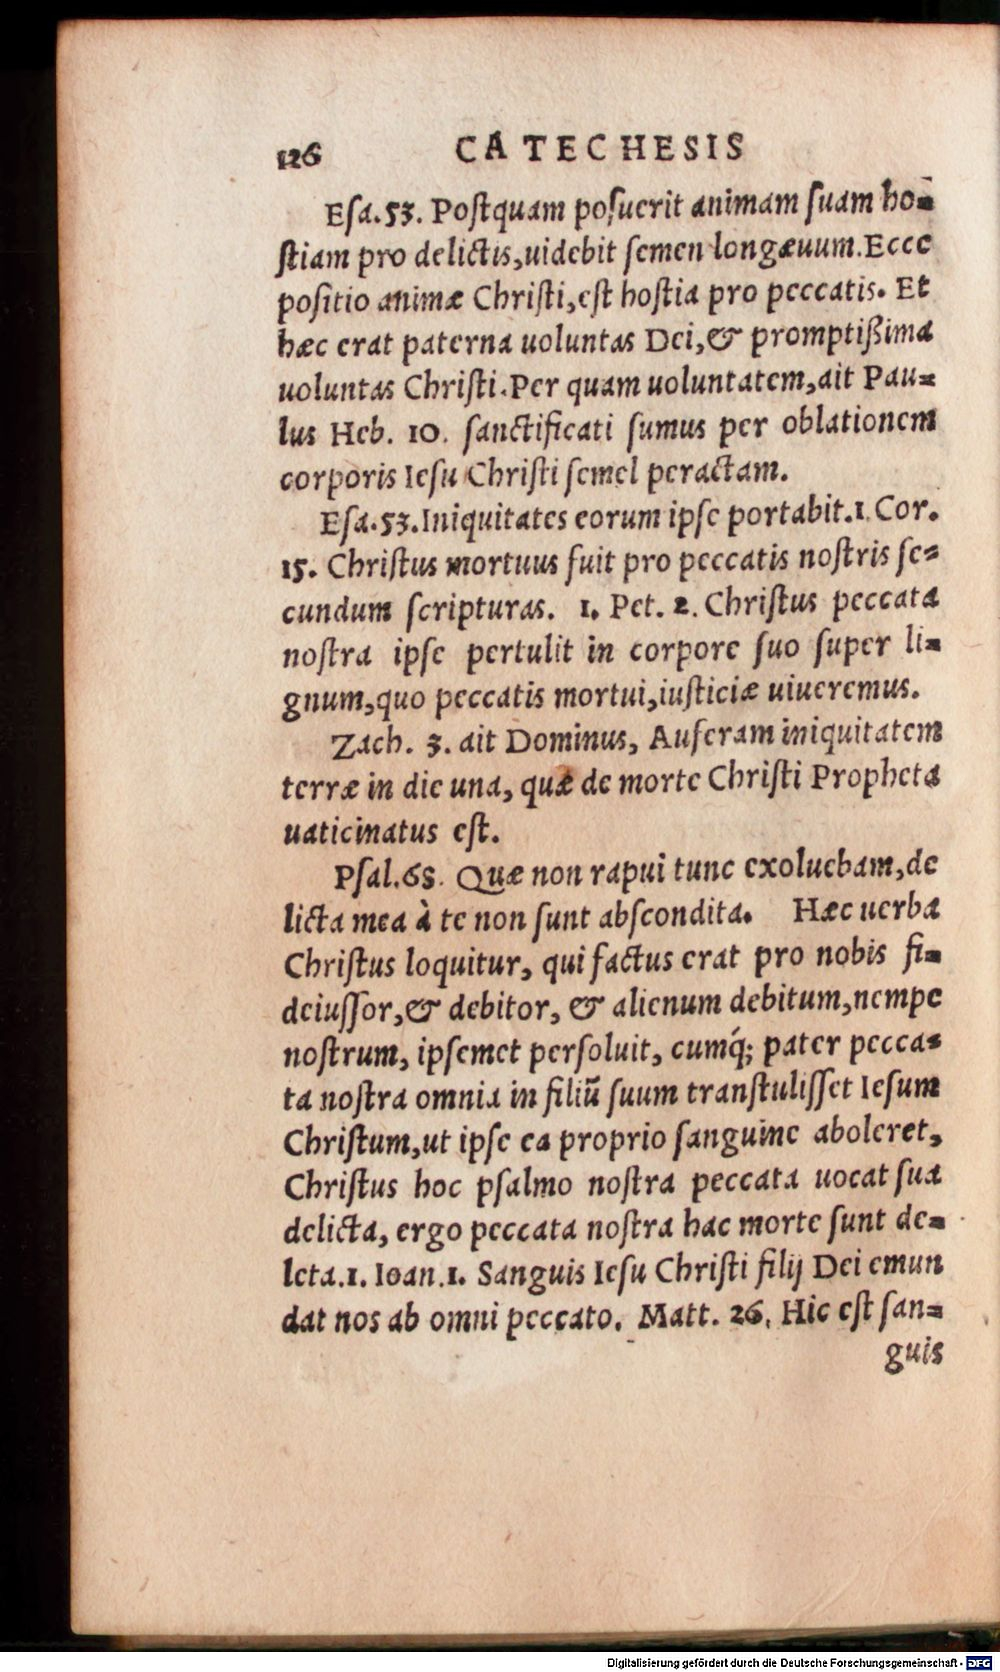 126 CATECHESIS
Esa.53. Postquam posuerit animam suam ho=
stiam pro delictis,uidebit semen longæuum.Ecce
positio animæ Christi,est hostia pro peccatis. Et
hæc erat paterna uoluntas Dei,& promptißima
uoluntas Christi.Per quam uoluntatem,ait Pau=
lus Heb. 10. sanctificati sumus per oblationem
corporis Iesu Christi semel peractam.
Esa.53.Iniquitates eorum ipse portabit.1.Cor.
15. Christus mortuus fuit pro peccatis nostris se=
cundum scripturas. 1. Pet. 2. Christus peccata
nostra ipse pertulit in corpore suo super li=
gnum,quo peccatis mortui,iusticiæ uiueremus.
Zach. 3. ait Dominus, Auferam iniquitatem
terræ in die una, quæ de morte Christi Propheta
uaticinatus est.
Psal.68. Quæ non rapui tunc exoluebam,de
licta mea à te non sunt abscondita. Hæc uerba
Christus loquitur, qui factus erat pro nobis fi=
deiussor,& debitor, & alienum debitum,nempe
nostrum, ipsemet persoluit, cumq́; pater pecca=
ta nostra omnia in filiũ suum transtulisset Iesum
Christum,ut ipse ea proprio sanguine aboleret,
Christus hoc psalmo nostra peccata uocat sua
delicta, ergo peccata nostra hac morte sunt de=
leta.1. Ioan.1. Sanguis Iesu Christi filij Dei emun
dat nos ab omni peccato. Matt. 26. Hic est san=
guis
Digitalisierung gefördert durch die Deutsche Forschungsgemeinschaft - DFG